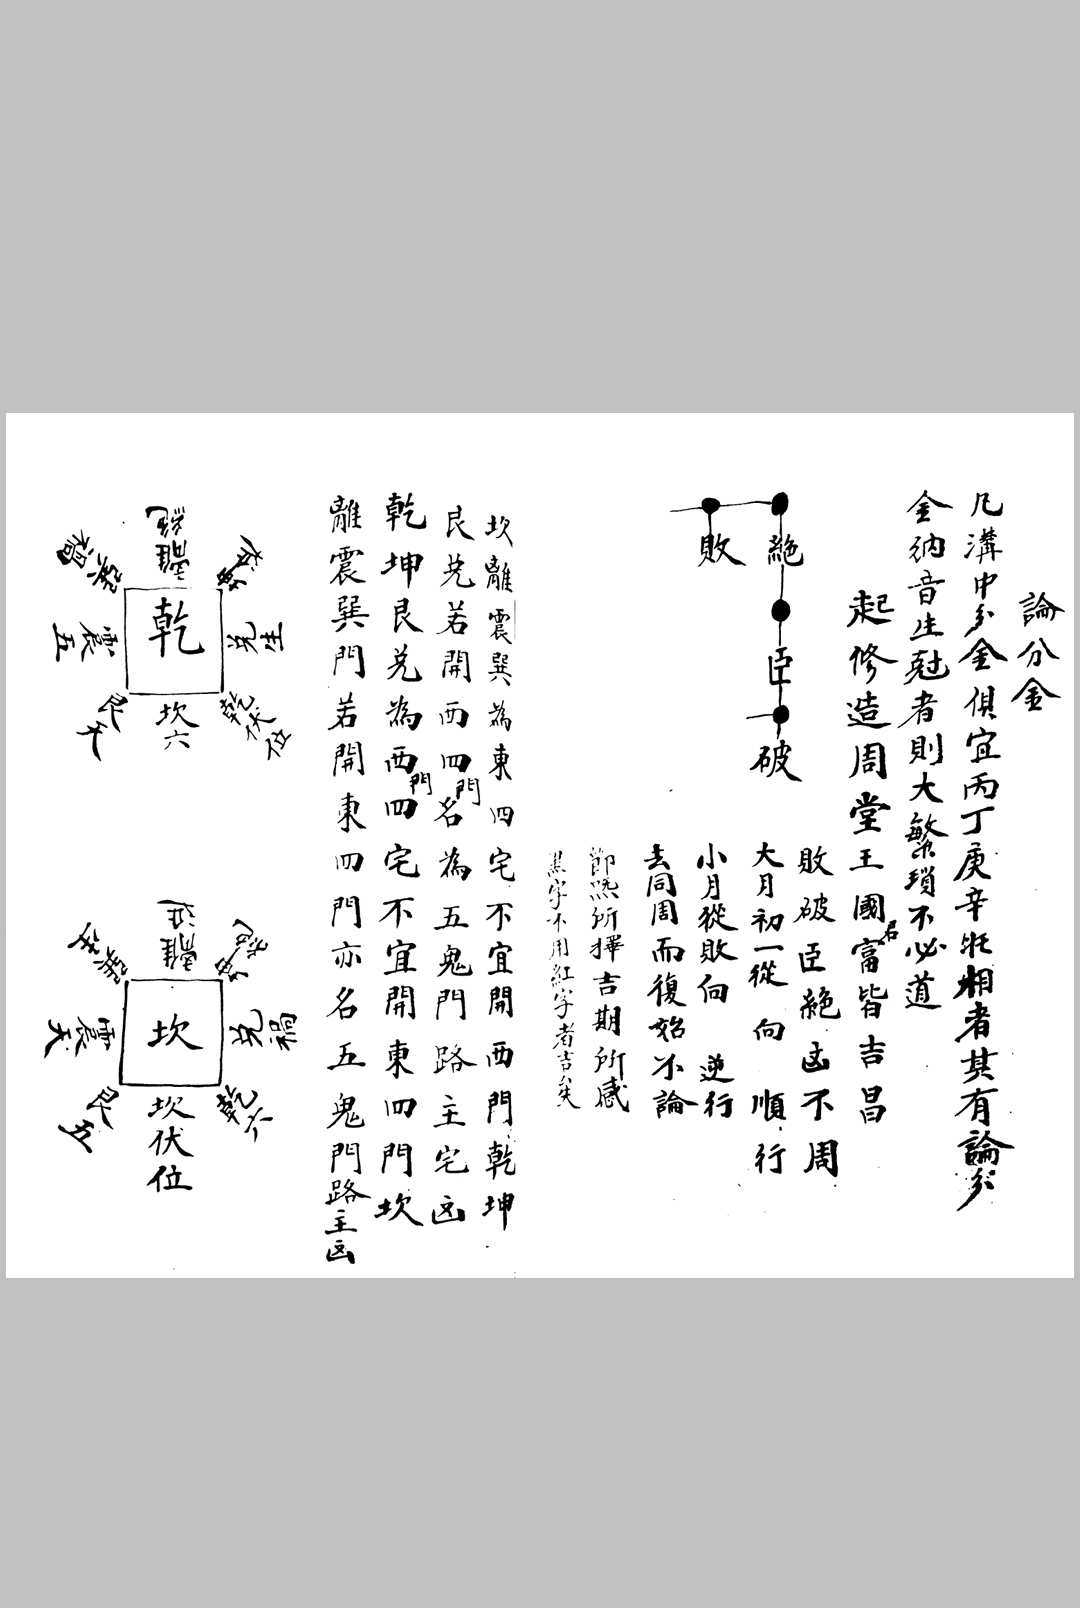 論分金
凡溝中分金俱宜丙丁庚辛 相者其有論分
金納音生尅者則大繁瑣不必道
起修造周堂王國富皆吉昌
名
敗破臣絕凶不周
大月初一從 向 順行
小月從敗向 逆行
去同周而復始不論
節 所擇吉期所感
黑字不用紅字者吉矣
絕
敗
臣
破
坎離震巽為東四宅不宜開西門乾坤
艮兌若開西四門名為五鬼門路主宅凶
乾坤艮兌為西四門宅不宜開東四門坎
離震巽門若開東四門亦名五鬼門路主凶
乾
離絕
坤
兌生
乾伏位
坎六
艮天
震五
巽禍
坎
離
坤絕
兌禍
乾六
坎伏位
艮五
震天
巽生